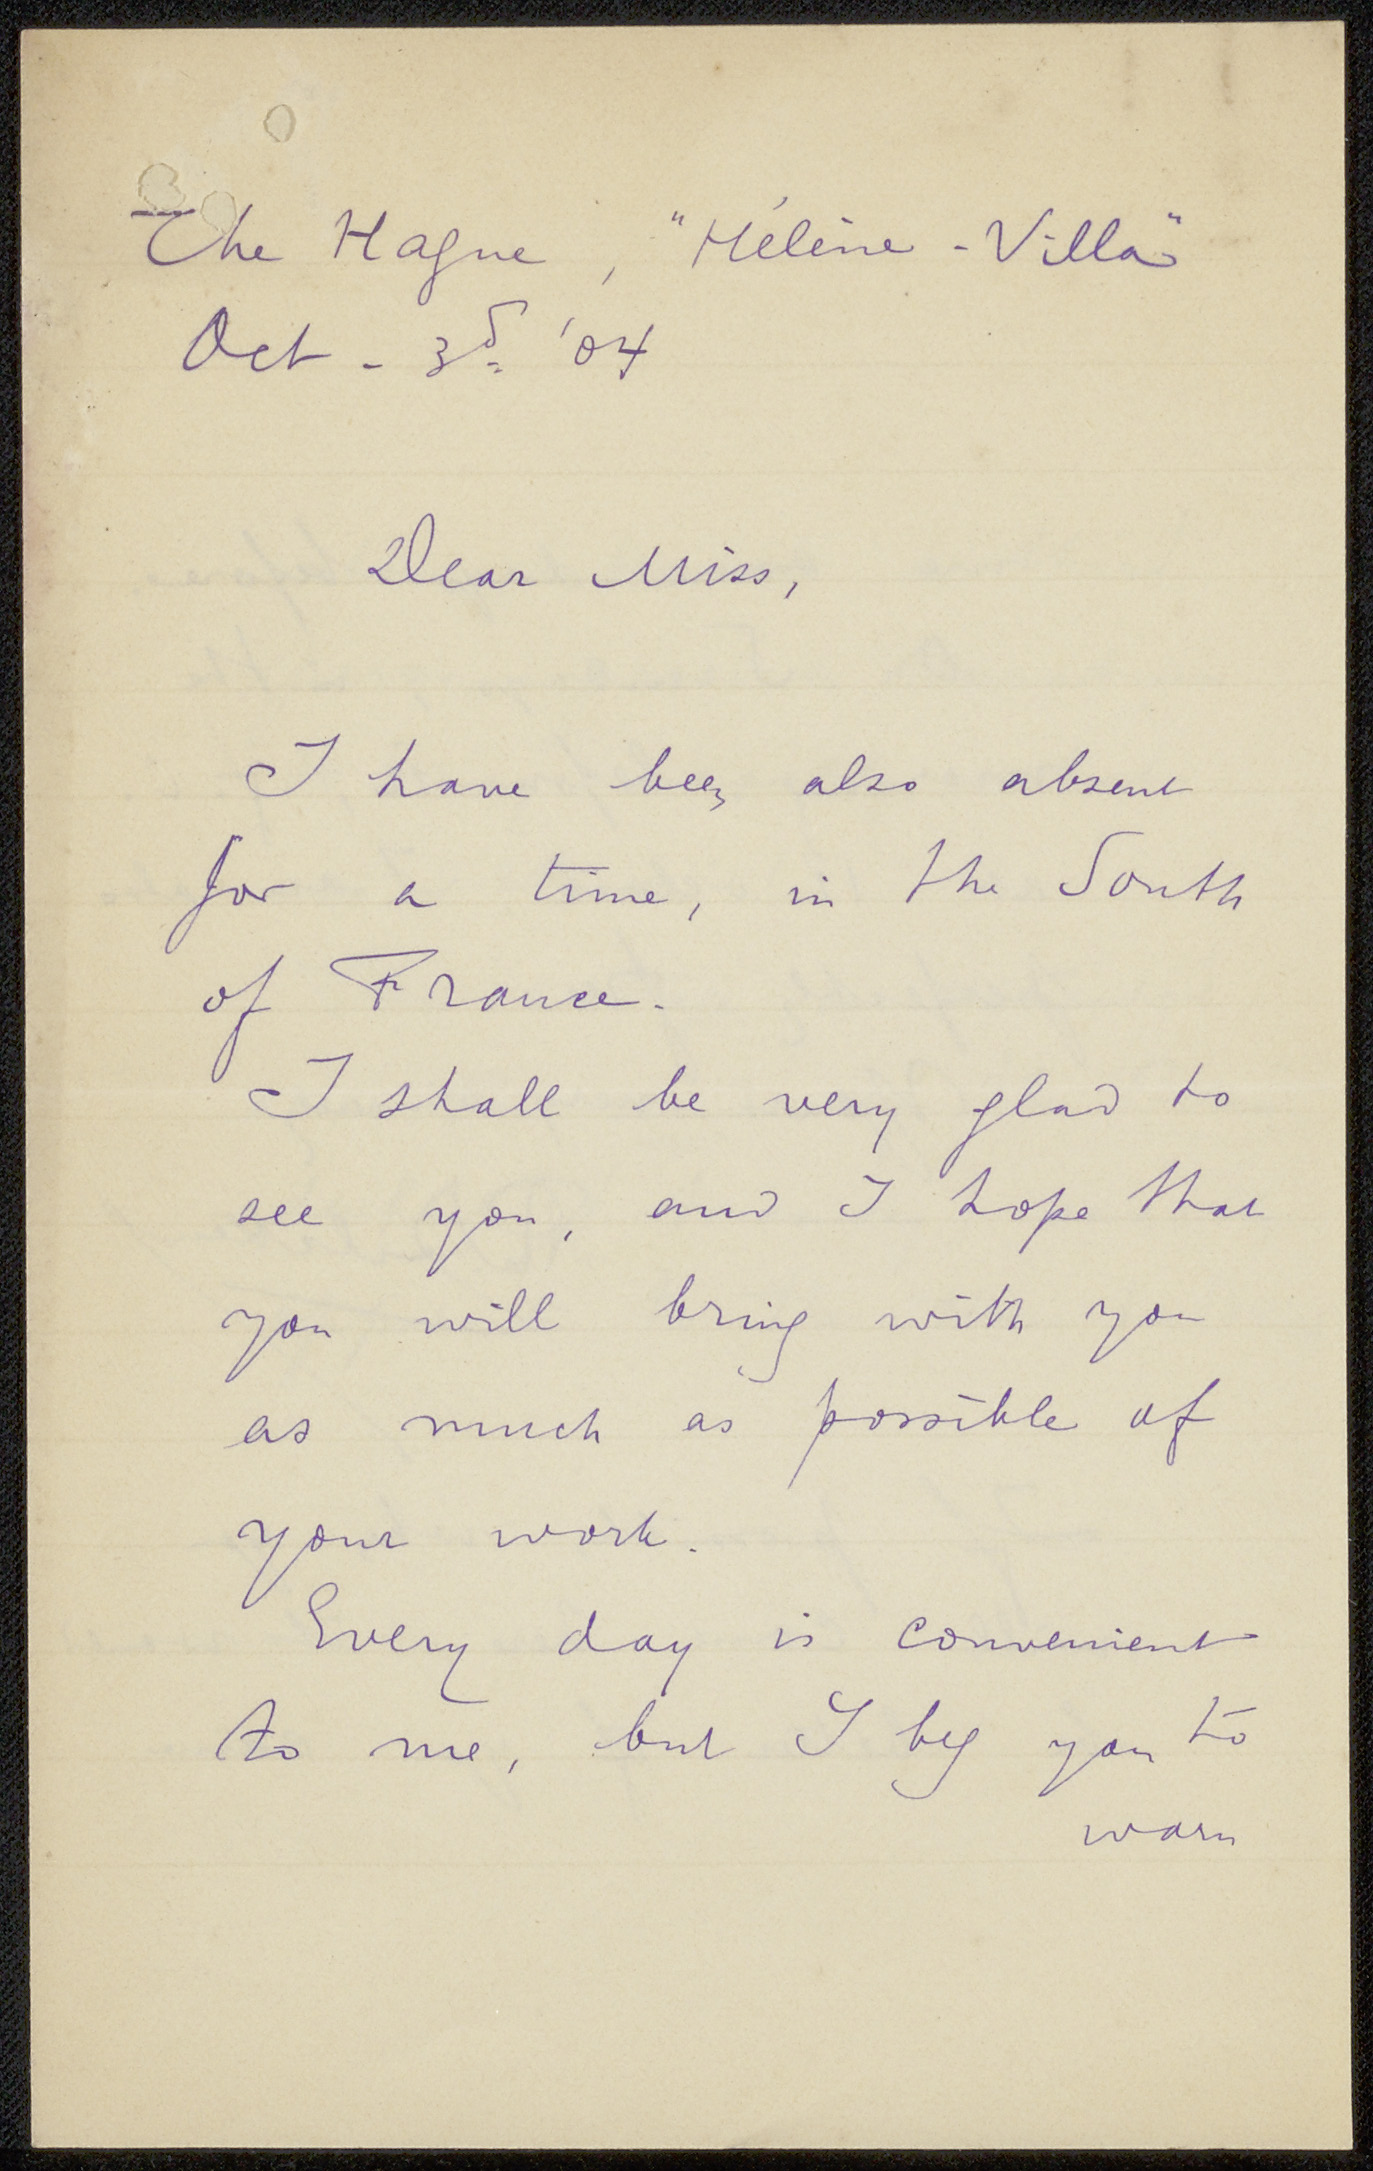 The Hague, "Hélène-Villa"
Oct - 3d '04
Dear Miss,
I have been also absent
for a time, in the South
of France.
I shall be very glad to
see you, and I hope that
you will bring with you
as much as possible of
your work.
Every day is convenient
to me, but I beg you to
warn